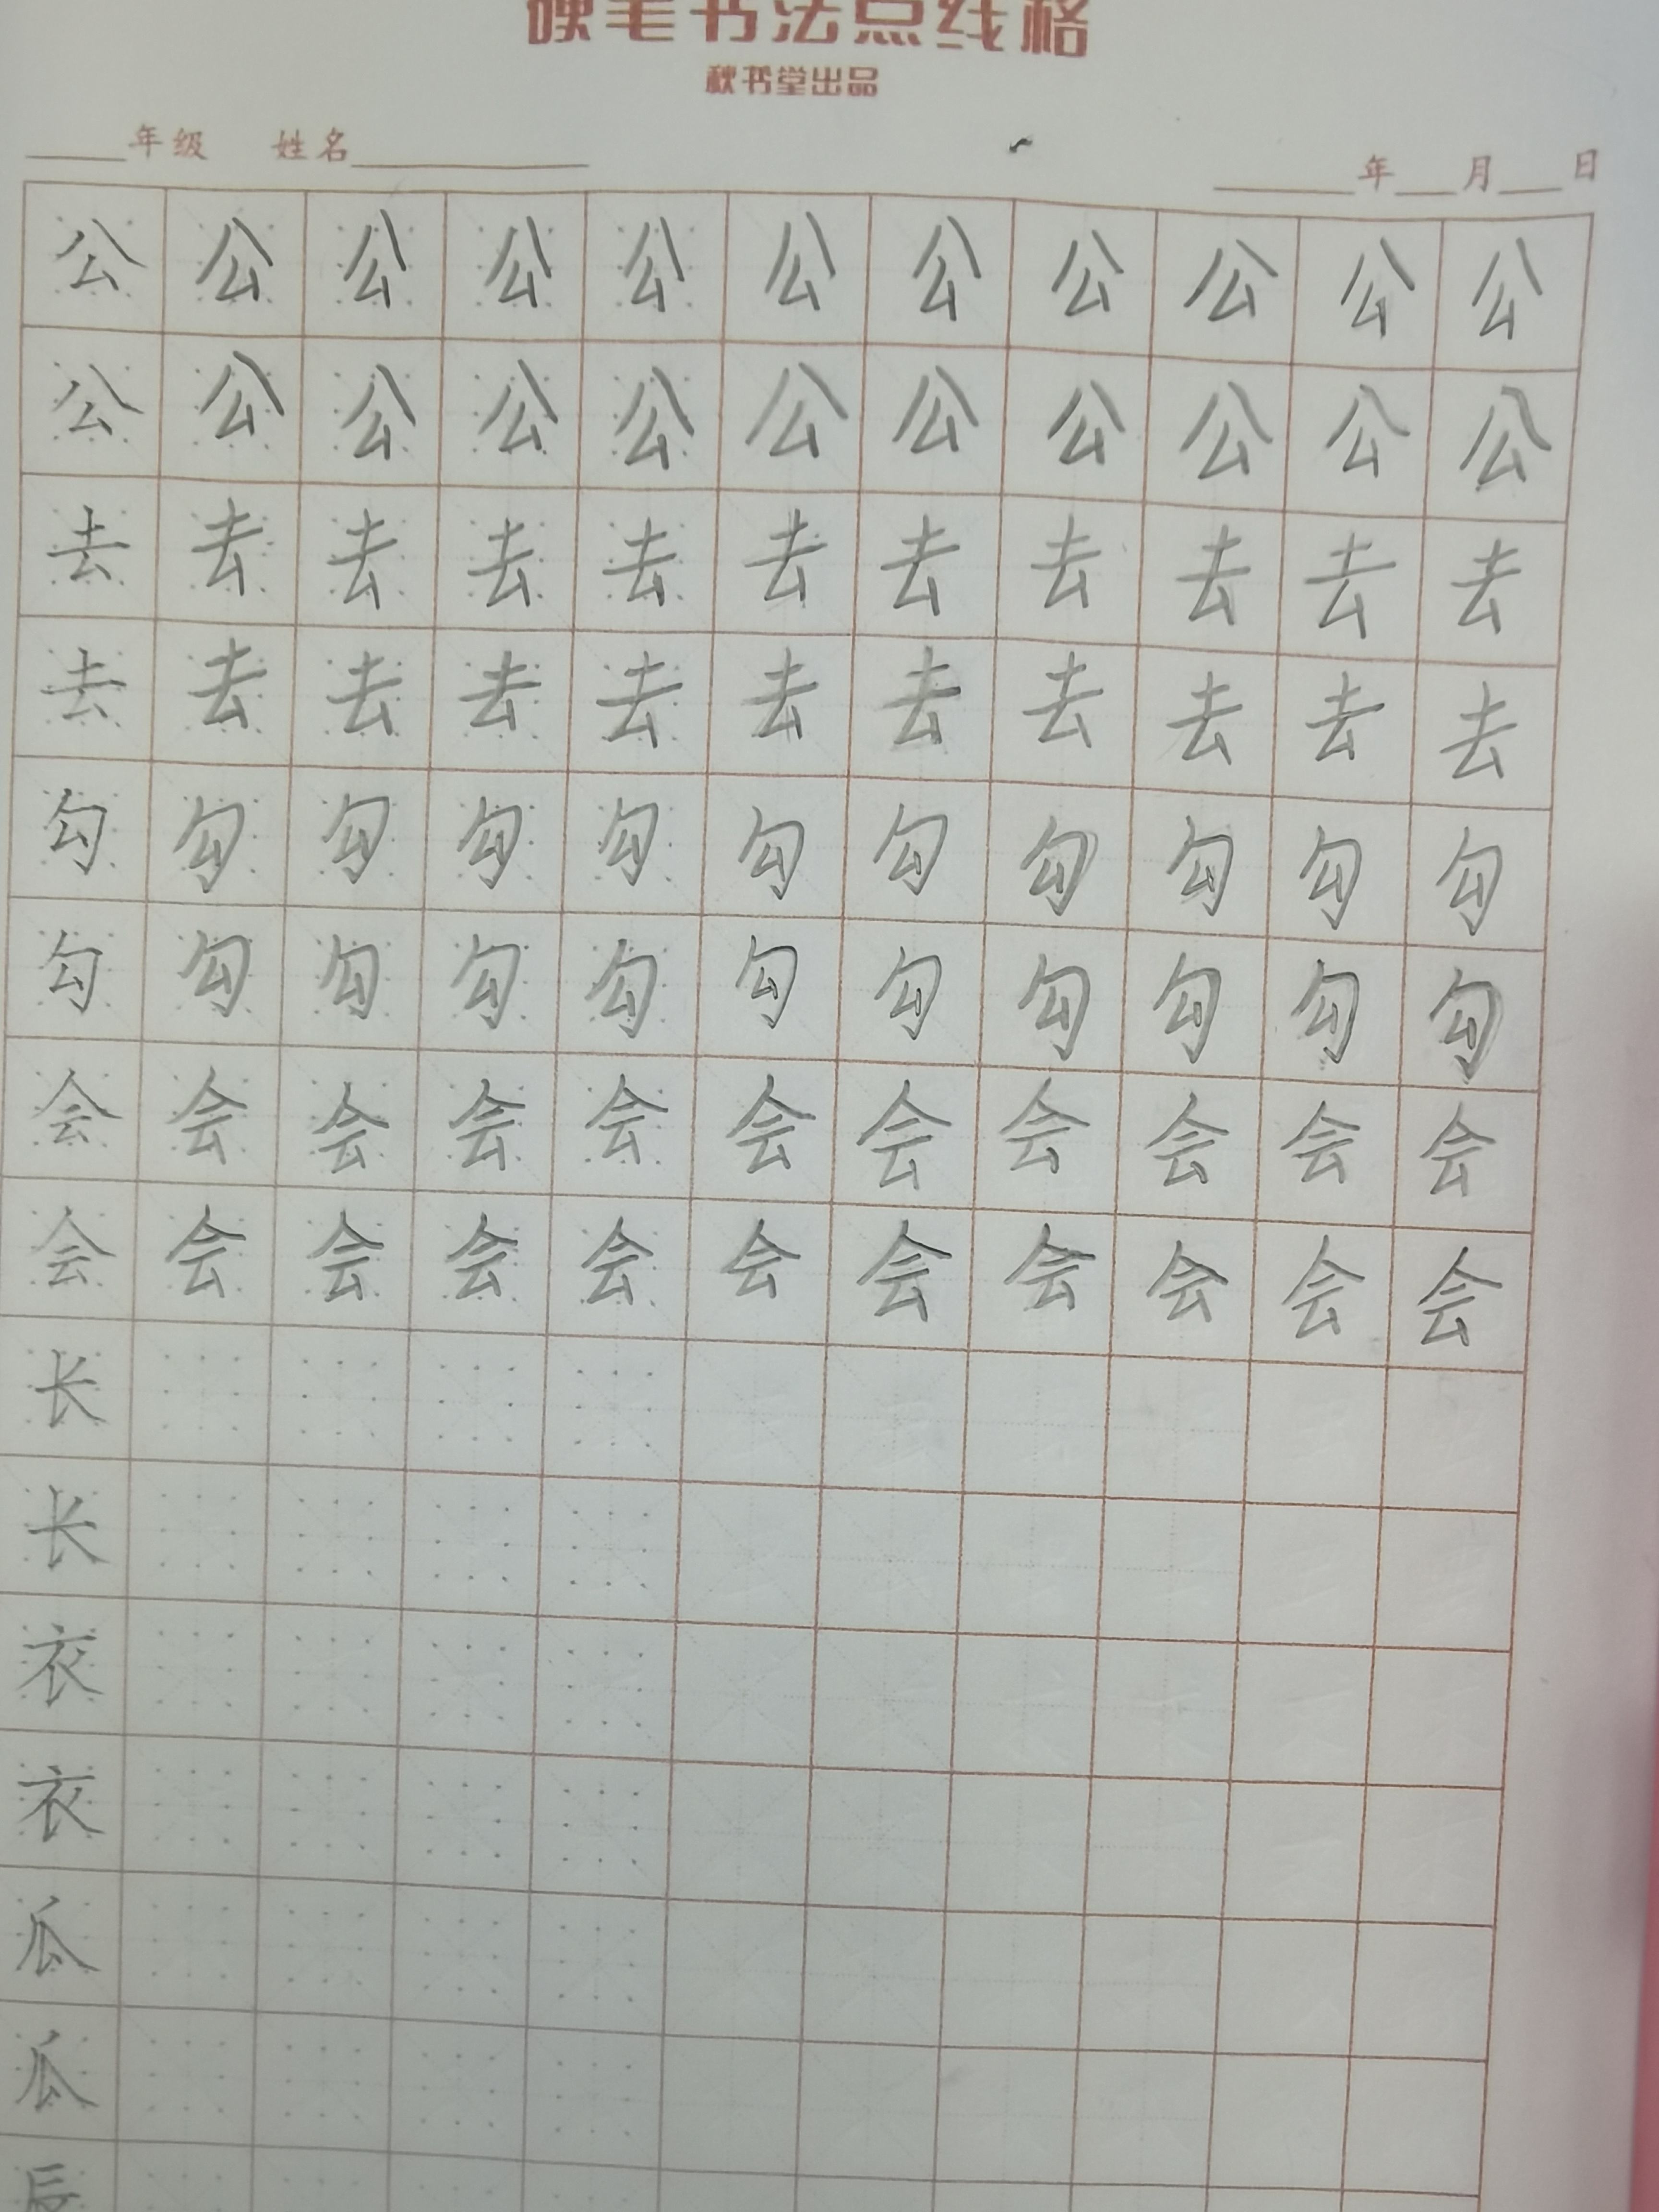 硬毛书法点线格
秋书堂出品
年级 姓名 年 月 日
公 公 公 公 公 公 公 公 公 公 公
公 公 公 公 公 公 公 公 公 公 公
去 去 去 去 去 去 去 去 去 去 去
去 去 去 去 去 去 去 去 去 去 去
勾 勾 勾 勾 勾 勾 勾 勾 勾 勾 勾
勾 勾 勾 勾 勾 勾 勾 勾 勾 勾 勾
会 会 会 会 会 会 会 会 会 会 会
会 会 会 会 会 会 会 会 会 会 会
长
长
衣
衣
瓜
瓜
辰